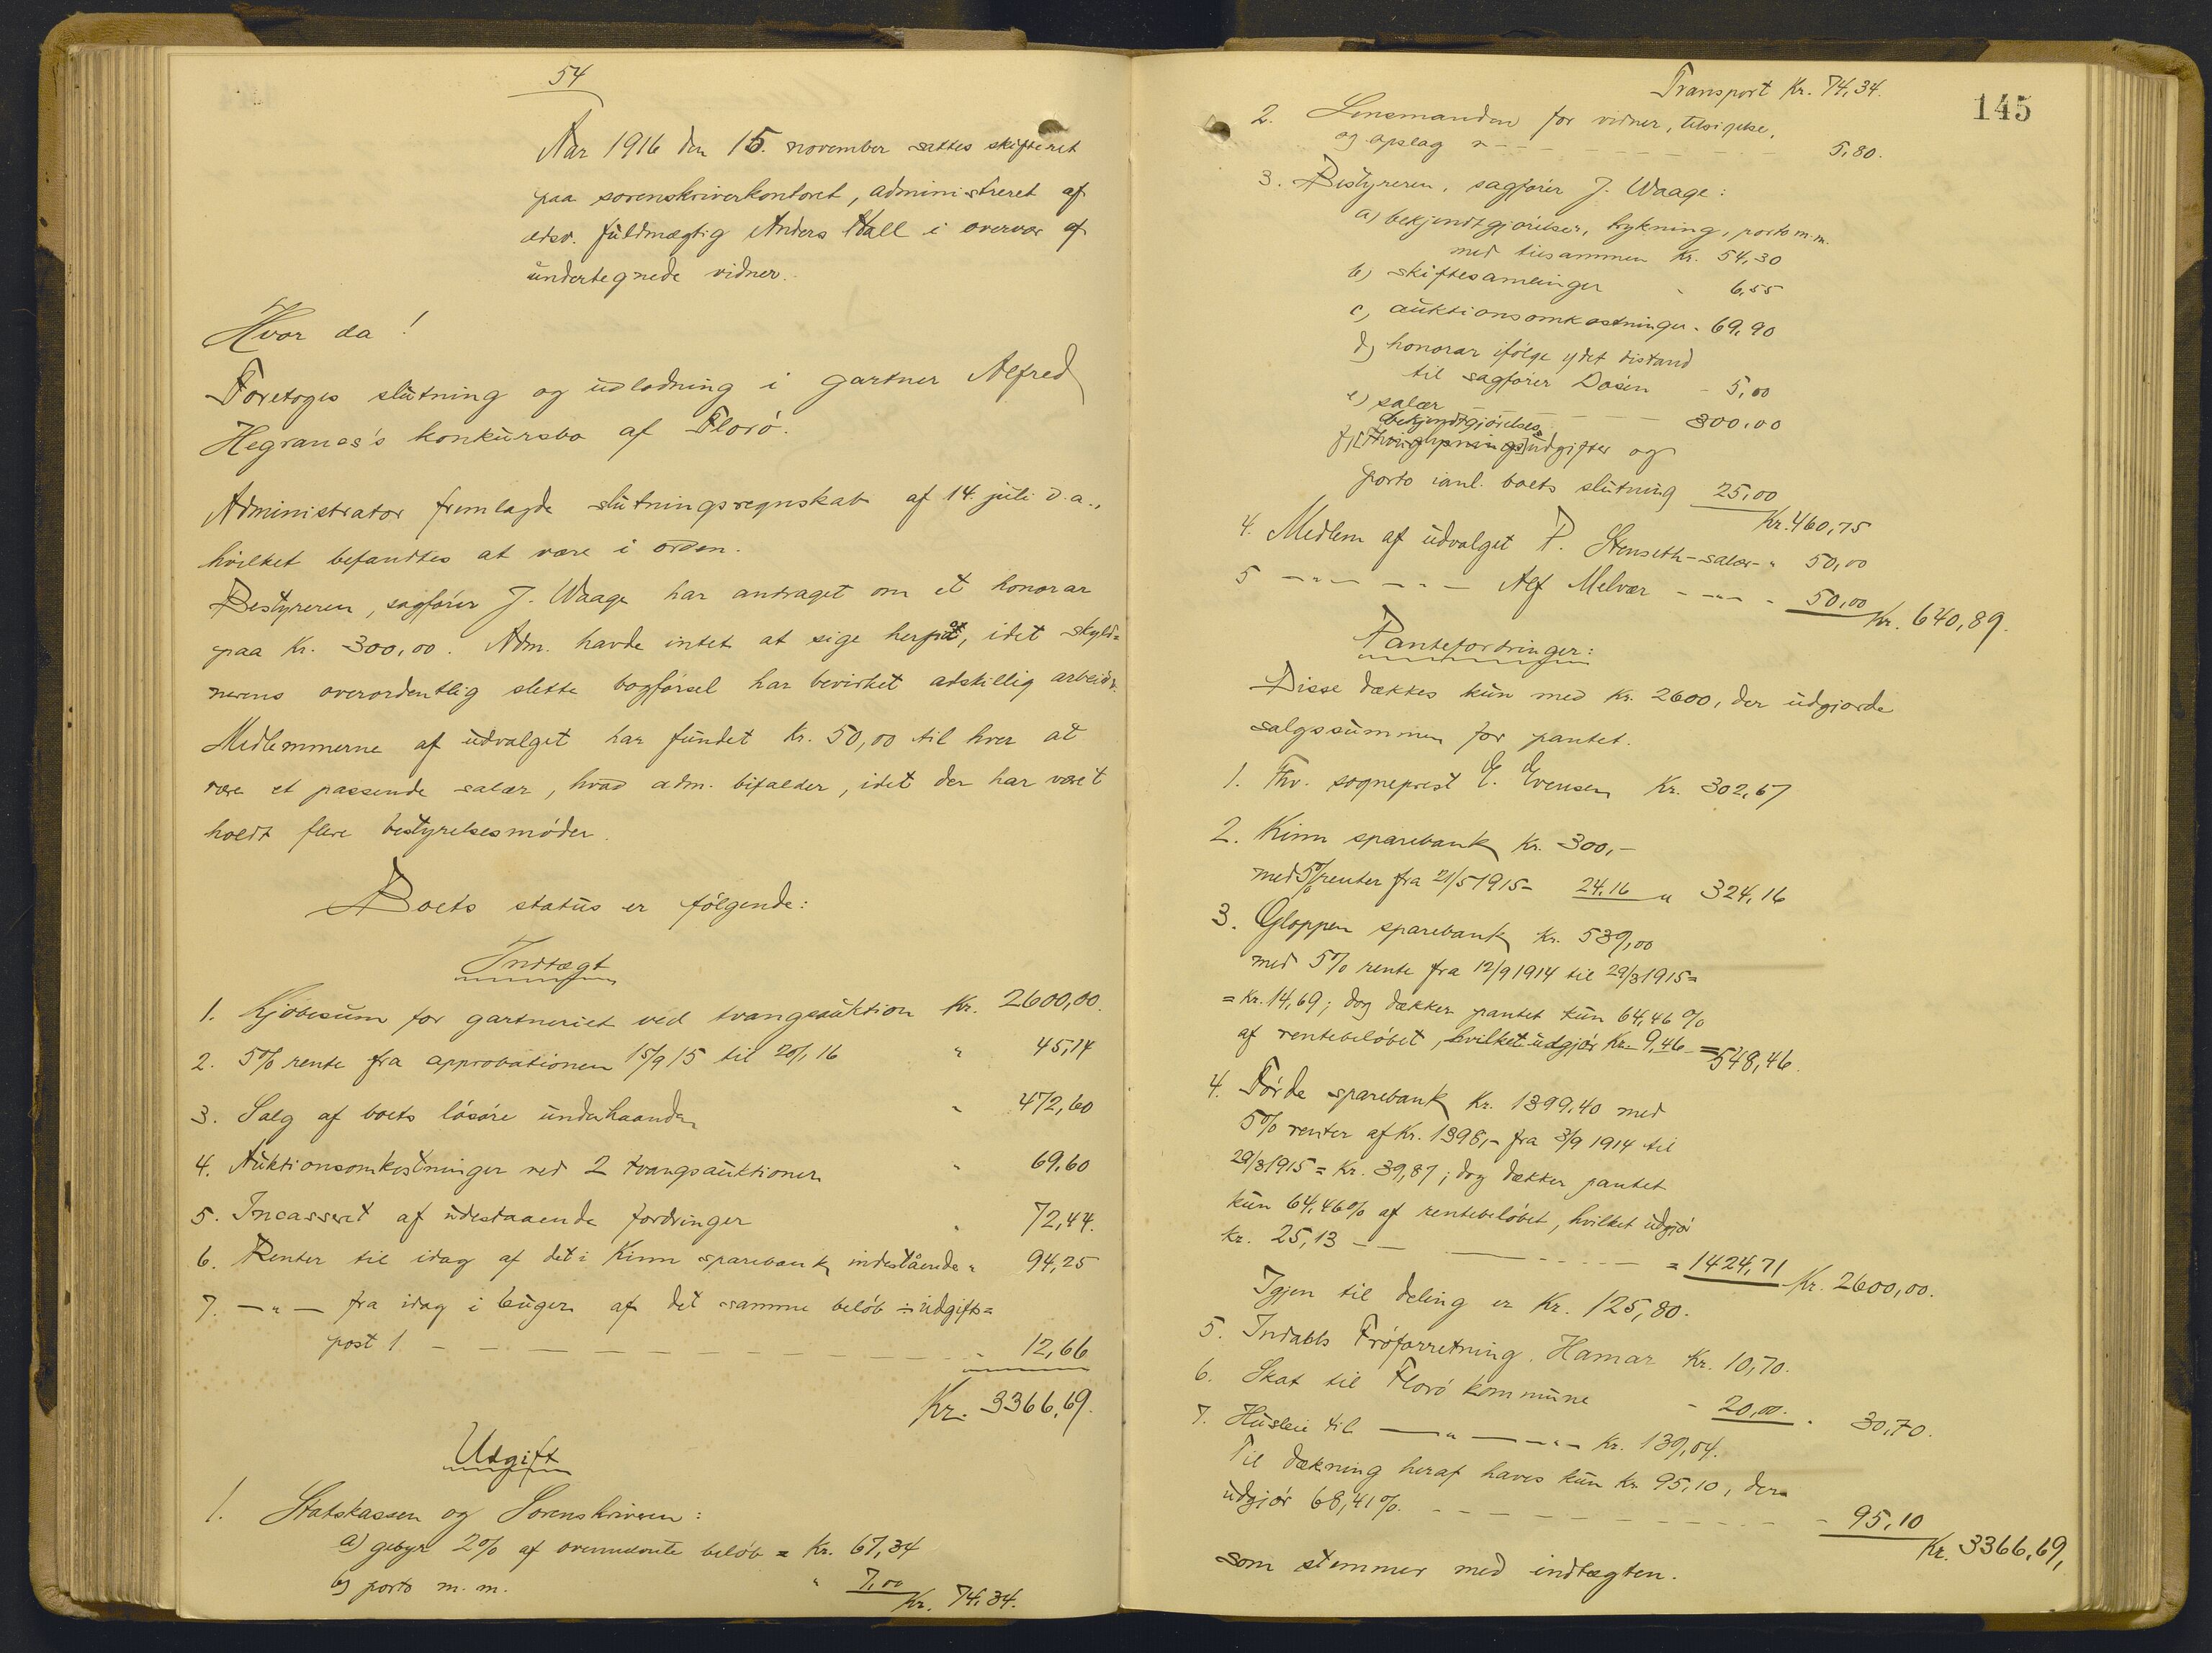 54
Aar 1916 den 15. november sattes skifteret
paa sorenskriverkontoret, administreret af
edsv. fuldmægtig Anders Hall i overvær af
undertegnede vidner.
Hvor da!
Foretoges slutning og udlodning i gartner Alfred
Hegranes's konkursbo af Florö.
Administrator fremlagde slutningsregnskab af 14. juli d.a.,
hvilket befandtes at være i orden.
Bestyreren, sagfører J. Waage har andraget om et honorar
paa Kr. 300,00. Adm. havde intet at sige herpaa, idet skyld=
nerens overordentlig slette bogførsel har bevirket adskillig arbeide.
Medlemmerne af udvalget har fundet Kr. 50,00 til hver at
være et passende salær, hvad adm. bifalder, idet der har været
holdt flere bestyrelsesmøder.
Boets status er følgende:
Indtægt
1. Kjøbesum for gartneriet ved tvangsauktion Kr. 2600,00.
2. 5% rente fra approbationen 15/9 15 til 20/1 16 " 45,14
3. Salg af boets løsøre underhaanden " 472,60
4. Auktionsomkostninger ved 2 tvangsauktioner " 69,60
5. Incasseret af udestaaende fordringer " 72,44.
6. Renter til idag af det i Kinn sparebank indestående " 94,25
7. —"— fra idag i 6 uger af det samme beløb ÷ udgifts=
post 1 — — — — — — " 12,66
Kr. 3366,69.
Udgift
1. Statskassen og Sorenskriveren:
a) gebyr 2% af ovennævnte beløb = Kr. 67,34
b) porto m.m. " 7,00
Kr. 74,34.
145
Transport Kr. 74,34.
2. Lensmanden for vidner, tilsigelse,
og opslag " — — — 5,80.
3. Bestyreren, sagfører J. Waage:
a) bekjendtgjørelser, trykning, porto m.m.
med tilsammen Kr. 54,30
b) skiftesamlinger " 6,55
c) auktionsomkostninger " 69,90
d) honorar ifølge ydet bistand
til sagfører Døsen - 5,00
e) salær — — — 300,00
bekjendtgjørelses
f) udgifter og
porto ianl. boets slutning 25,00
Kr. 460,75
4. Medlem af udvalget P. Stenseth - salær - " 50,00
5 —"— —"— Alf Melvær —"— " 50,00
Kr. 640,89.
Pantefordringer:
Disse dækkes kun med Kr. 2600, der udgjorde
salgssummen for pantet.
1. Fhv. sogneprest E. Evensen Kr. 302,67
2. Kinn sparebank Kr. 300,-
med 5% renter fra 21/5 1915 - 24,16 " 324,16
3. Gloppen sparebank Kr. 539,00
med 5% rente fra 12/9 1914 til 29/3 1915 =
= Kr. 14,69; dog dækker pantet kun 64,46 %
af rentebeløbet, hvilket udgjør Kr. 9,46 = 548,46.
4. Førde sparebank Kr. 1399,40 med
5% renter af Kr. 1398,- fra 3/9 1914 til
29/3 1915 = Kr. 39,87; dog dækker pantet
kun 64,46% af rentebeløbet, hvilket udgjør
Kr. 25,13 — — — = 1424,71
Kr. 2600,00.
Igjen til deling er Kr. 125,80.
5. Indahls Frøforretning, Hamar Kr. 10,70.
6. Skat til Florö kommune - 20,00. " 30,70.
7. Husleie til —"— —"— Kr. 139,04.
Til dækning heraf haves kun Kr. 95,10, der
udgjør 68,41%. — — — - 95,10
Kr. 3366,69,
som stemmer med indtægten.